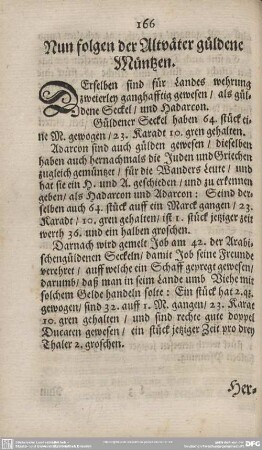 166
Nun folgen der Altväter güldene
Müntzen.
DErselben sind für Landes wehrung
zweierley ganghafftig gewesen / als gül-
dene Seckel / und Hadarcon.
Güldener Seckel haben 64. stück ei-
ne M. gewogen / 23. Karadt 10. gren gehalten.
Adarcon sind auch gülden gewesen / dieselben
haben auch hernachmals die Juden und Griechen
zugleich gemüntzet / für die Wanders Leute / und
hat sie ein H. und A. geschieden / und zu erkennen
geben / als Hadarcon und Adarcon: Seind der-
selben auch 64. stück auff ein Marck gangen / 23.
Karadt / 10. gren gehalten / ist 1. stück jetziger zeit
werth 36. und ein halben groschen.
Darnach wird gemelt Job am 42. der Arabi-
schengüldenen Seckeln / damit Job seine Freunde
verehret / auff welche ein Schaff gepreget gewesen /
darumb / daß man in seim Lande umb Viehe mit
solchem Gelde handeln solte: Ein stück hat 2. qt.
gewogen / sind 32. auff 1. M. gangen / 23. Karat
10. gren gehalten / und sind rechte gute doppel
Ducaten gewesen / ein stück jetziger Zeit pro drey
Thaler 2. groschen.
Her-